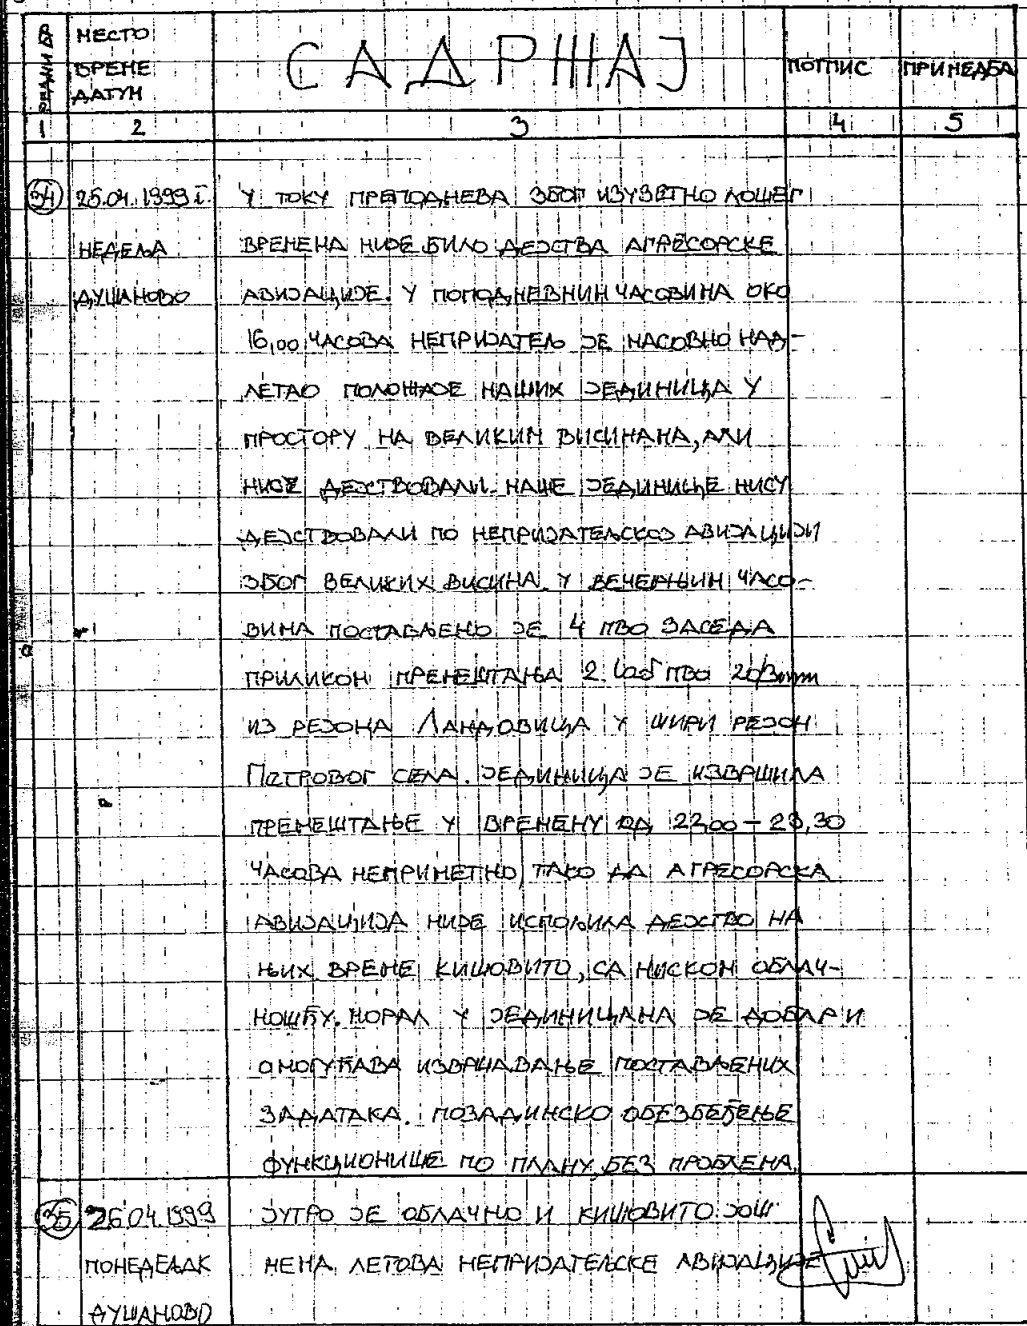 РЕДНИ БР
МЕСТО
ВРЕМЕ
ДАТУМ
САДРЖАЈ
ПОТПИС
ПРИМЕДБА
1 2 3 4 5
34 25.04.1999 г. У ТОКУ ПРЕПОДНЕВА ЗБОГ ИЗУЗЕТНО ЛОШЕГ
НЕДЕЉА ВРЕМЕНА НИЈЕ БИЛО ДЕЈСТВА АГРЕСОРСКЕ
ДУШАНОВО АВИЈАЦИЈЕ. У ПОПОДНЕВНИМ ЧАСОВИМА ОКО
16,00 ЧАСОВА НЕПРИЈАТЕЉ ЈЕ МАСОВНО НАД-
ЛЕТАО ПОЛОЖАЈЕ НАШИХ ЈЕДИНИЦА У
ПРОСТОРУ НА ВЕЛИКИМ ВИСИНАМА, АЛИ
НИЈЕ ДЕЈСТВОВАЛИ. НАШЕ ЈЕДИНИЦЕ НИСУ
ДЕЈСТВОВАЛИ ПО НЕПРИЈАТЕЉСКОЈ АВИЈАЦИЈИ
ЗБОГ ВЕЛИКИХ ВИСИНА. У ВЕЧЕРЊИМ ЧАСО-
ВИМА ПОСТАВЉЕНО ЈЕ 4 ПВО ЗАСЕДА
ПРИЛИКОМ ПРЕМЕШТАЊА 2. ПВО 20/3mm
ИЗ РЕЈОНА ЛАНДОВИЦА У ШИРИ РЕЈОН
ПЕТРОВОГ СЕЛА. ЈЕДИНИЦА ЈЕ ИЗВРШИЛА
ПРЕМЕШТАЊЕ У ВРЕМЕНУ ОД 22,00 – 23,30
ЧАСОВА НЕПРИМЕТНО, ТАКО ДА АГРЕСОРСКА
АВИЈАЦИЈА НИЈЕ ИСПОЉИЛА ДЕЈСТВО НА
ЊИХ. ВРЕМЕ КИШОВИТО, СА НИСКОМ ОБЛАЧ-
НОШЋУ. МОРАЛ У ЈЕДИНИЦАМА ЈЕ ДОБАР И
ОМОГУЋАВА ИЗВРШАВАЊЕ ПОСТАВЉЕНИХ
ЗАДАТАКА. ПОЗАДИНСКО ОБЕЗБЕЂЕЊЕ
ФУНКЦИОНИШЕ ПО ПЛАНУ, БЕЗ ПРОБЛЕМА.
35 26.04.1999 ЈУТРО ЈЕ ОБЛАЧНО И КИШОВИТО. ЈОШ
ПОНЕДЕЉАК НЕМА ЛЕТОВА НЕПРИЈАТЕЉСКЕ АВИЈАЦИЈЕ
ДУШАНОВО